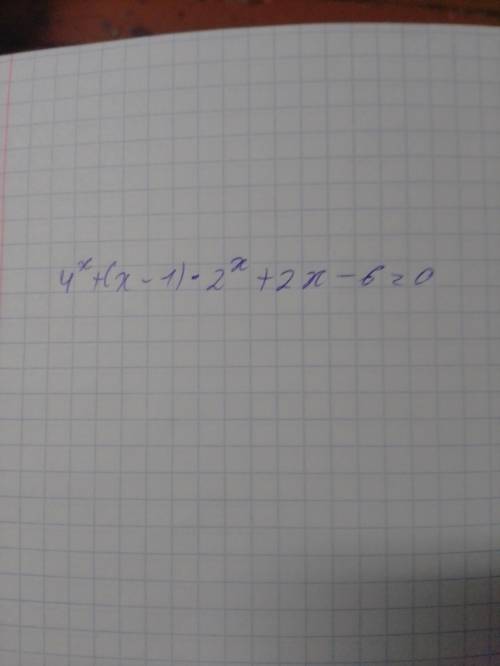 4^x+(x-1)·2^x+2x-6=0